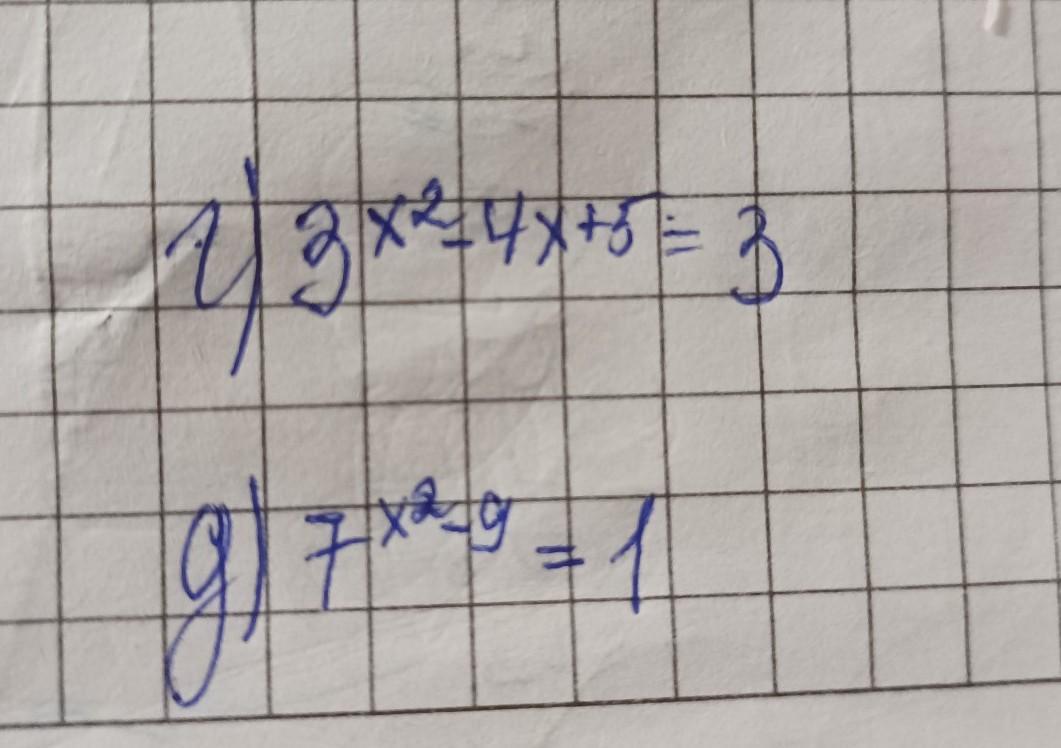 г) 3^(x²-4x+5) = 3
д) 7^(x²-9) = 1